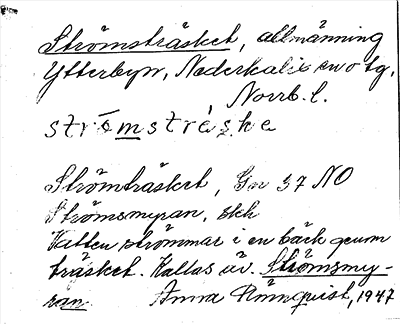 Strömsträsket, allmänning
Ytterbyn, Nederkalix sn o tg,
Norrb. l.
strǿmstráske
Strömträsket, Gsv 37 NO
Strömsmyran, Ekk
Vatten strömmar i en bäck genom
träsket. Kallas äv. Strömsmy-
ran. Anna Rönnquist, 1947